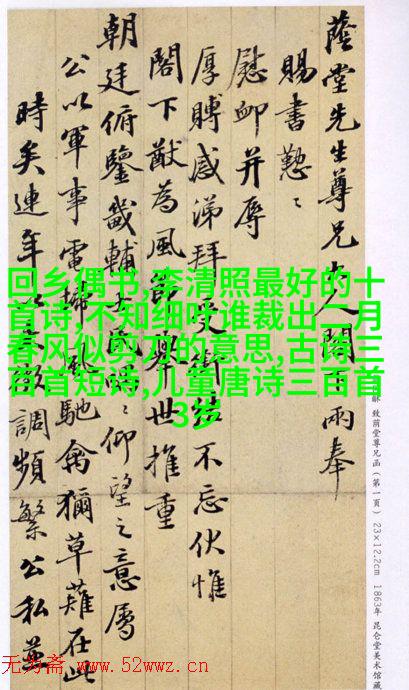 蔭堂先生尊兄大人閣下兩奉
賜書懃〻
慰卹并辱
厚賻感涕拜受銜結不忘伏惟
閣下猷為風節舉世推重
朝廷俯鑒畿輔士民喁〻仰望之意屬
公以軍事電掃風馳禽獮草薙在此
時矣連年徵調頻繁公私並
回乡偶书,李清照最好的十
首诗,不知细叶谁裁出二月
春风似剪刀的意思,古诗三
百首短诗,儿童唐诗三百首
3岁
致荫堂尊兄函(第一頁) 23×12.2cm 1863年 昆仑堂美术馆藏
无为斋 www.52wwz.cn